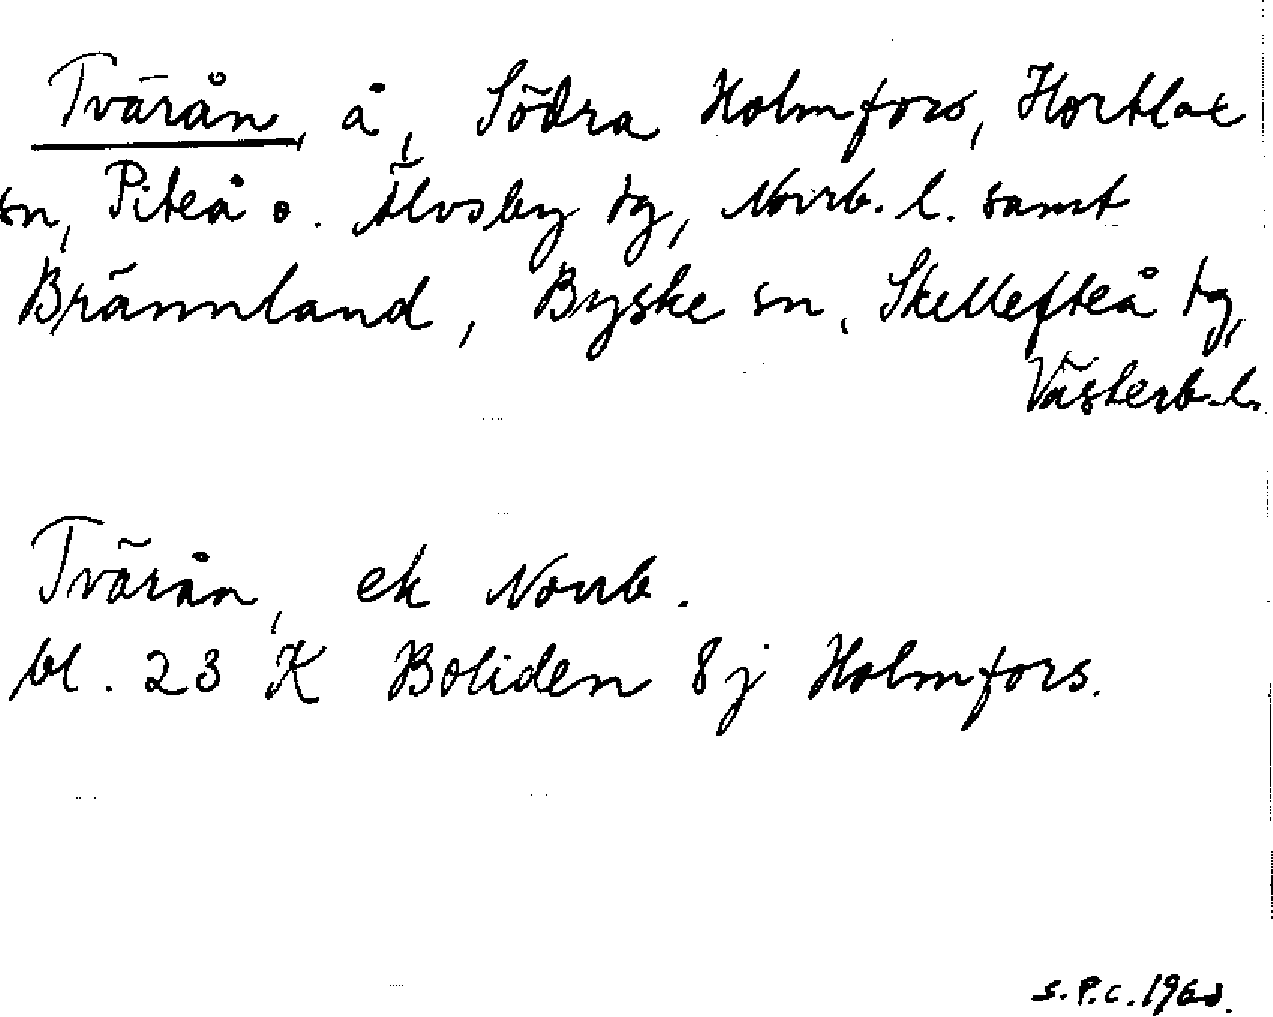 Tvärån, å, Södra Holmfors, Hortlax
sn, Piteå o. Älvsby tg, Norrb. l. samt
Brännland, Byske sn, Skellefteå tg,
Västerb. l.
Tvärån, ek Norrb.
bl. 23 K Boliden 8j Holmfors.
S.P.C.